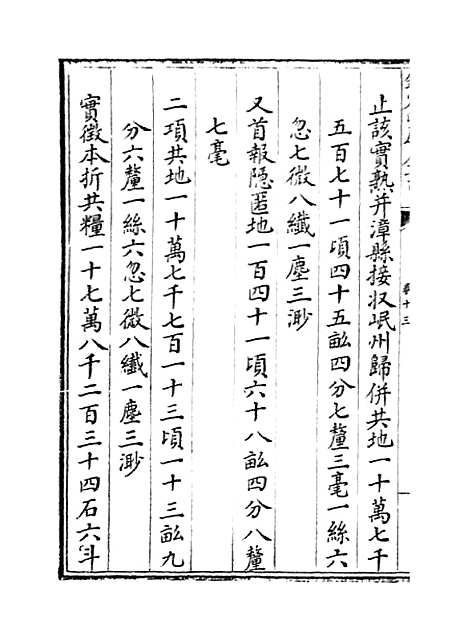 止該實熟并漳縣接收岷州歸併共地一十萬七千
五百七十一頃四十五畝四分七釐三毫一絲六
忽七微八纖一塵三渺
又首報隐匿地一百四十一頃六十八畝四分八釐
七毫
二項共地一十萬七千七百一十三頃一十三畝九
分六釐一絲六忽七微八纖一塵三渺
實徵本折共糧一十七萬八千二百三十四石六斗
卷十三